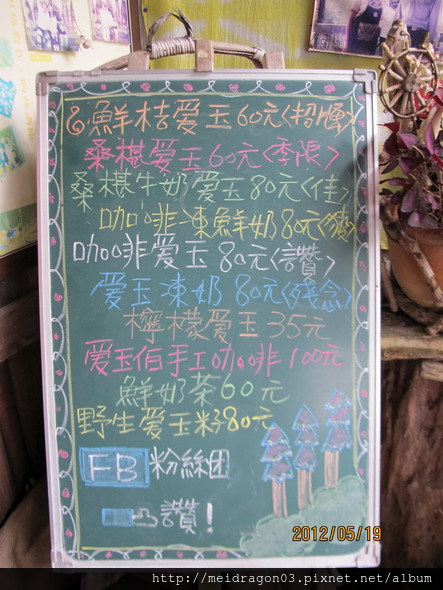 鮮桔爱玉60元<招牌>
桑椹爱玉60元<季限>
桑椹牛奶爱玉80元<佳>
咖啡凍鮮奶80元<優>
咖啡爱玉80元<讚>
爱玉凍奶80元<殘念>
檸檬爱玉35元
爱玉伯手工咖啡100元
鮮奶茶60元
野生爱玉籽80元
FB粉絲团
讚!
2012/05/19
http://meidragon03.pixnet.net/album